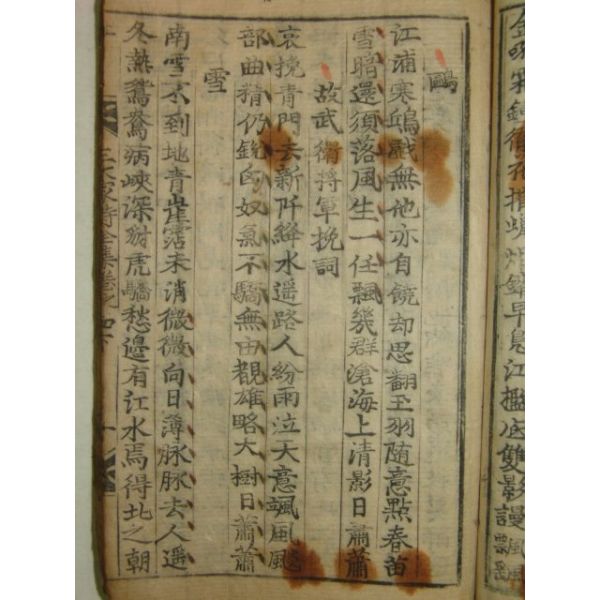 金吼霜鍾徹花 蠟 早鳧江檻底雙影謾飄颻
鷗
江浦寒鷗戲無他亦自饒却思翻玉羽隨意點春苗
雪暗還須落風生一任飄幾群滄海上清影日蕭蕭
故武衛將軍挽詞
哀挽青門去新阡絳水遥路人紛雨泣天意颯風飈
部曲精仍銳匈奴氣不驕無由覩雄略大樹日蕭蕭
雪
南雪不到地青崖霑未消微微向日薄脉脉去人遥
冬熱鴛鴦病峽深豺虎驕愁邊有江水焉得北之朝
詩全集卷之四下